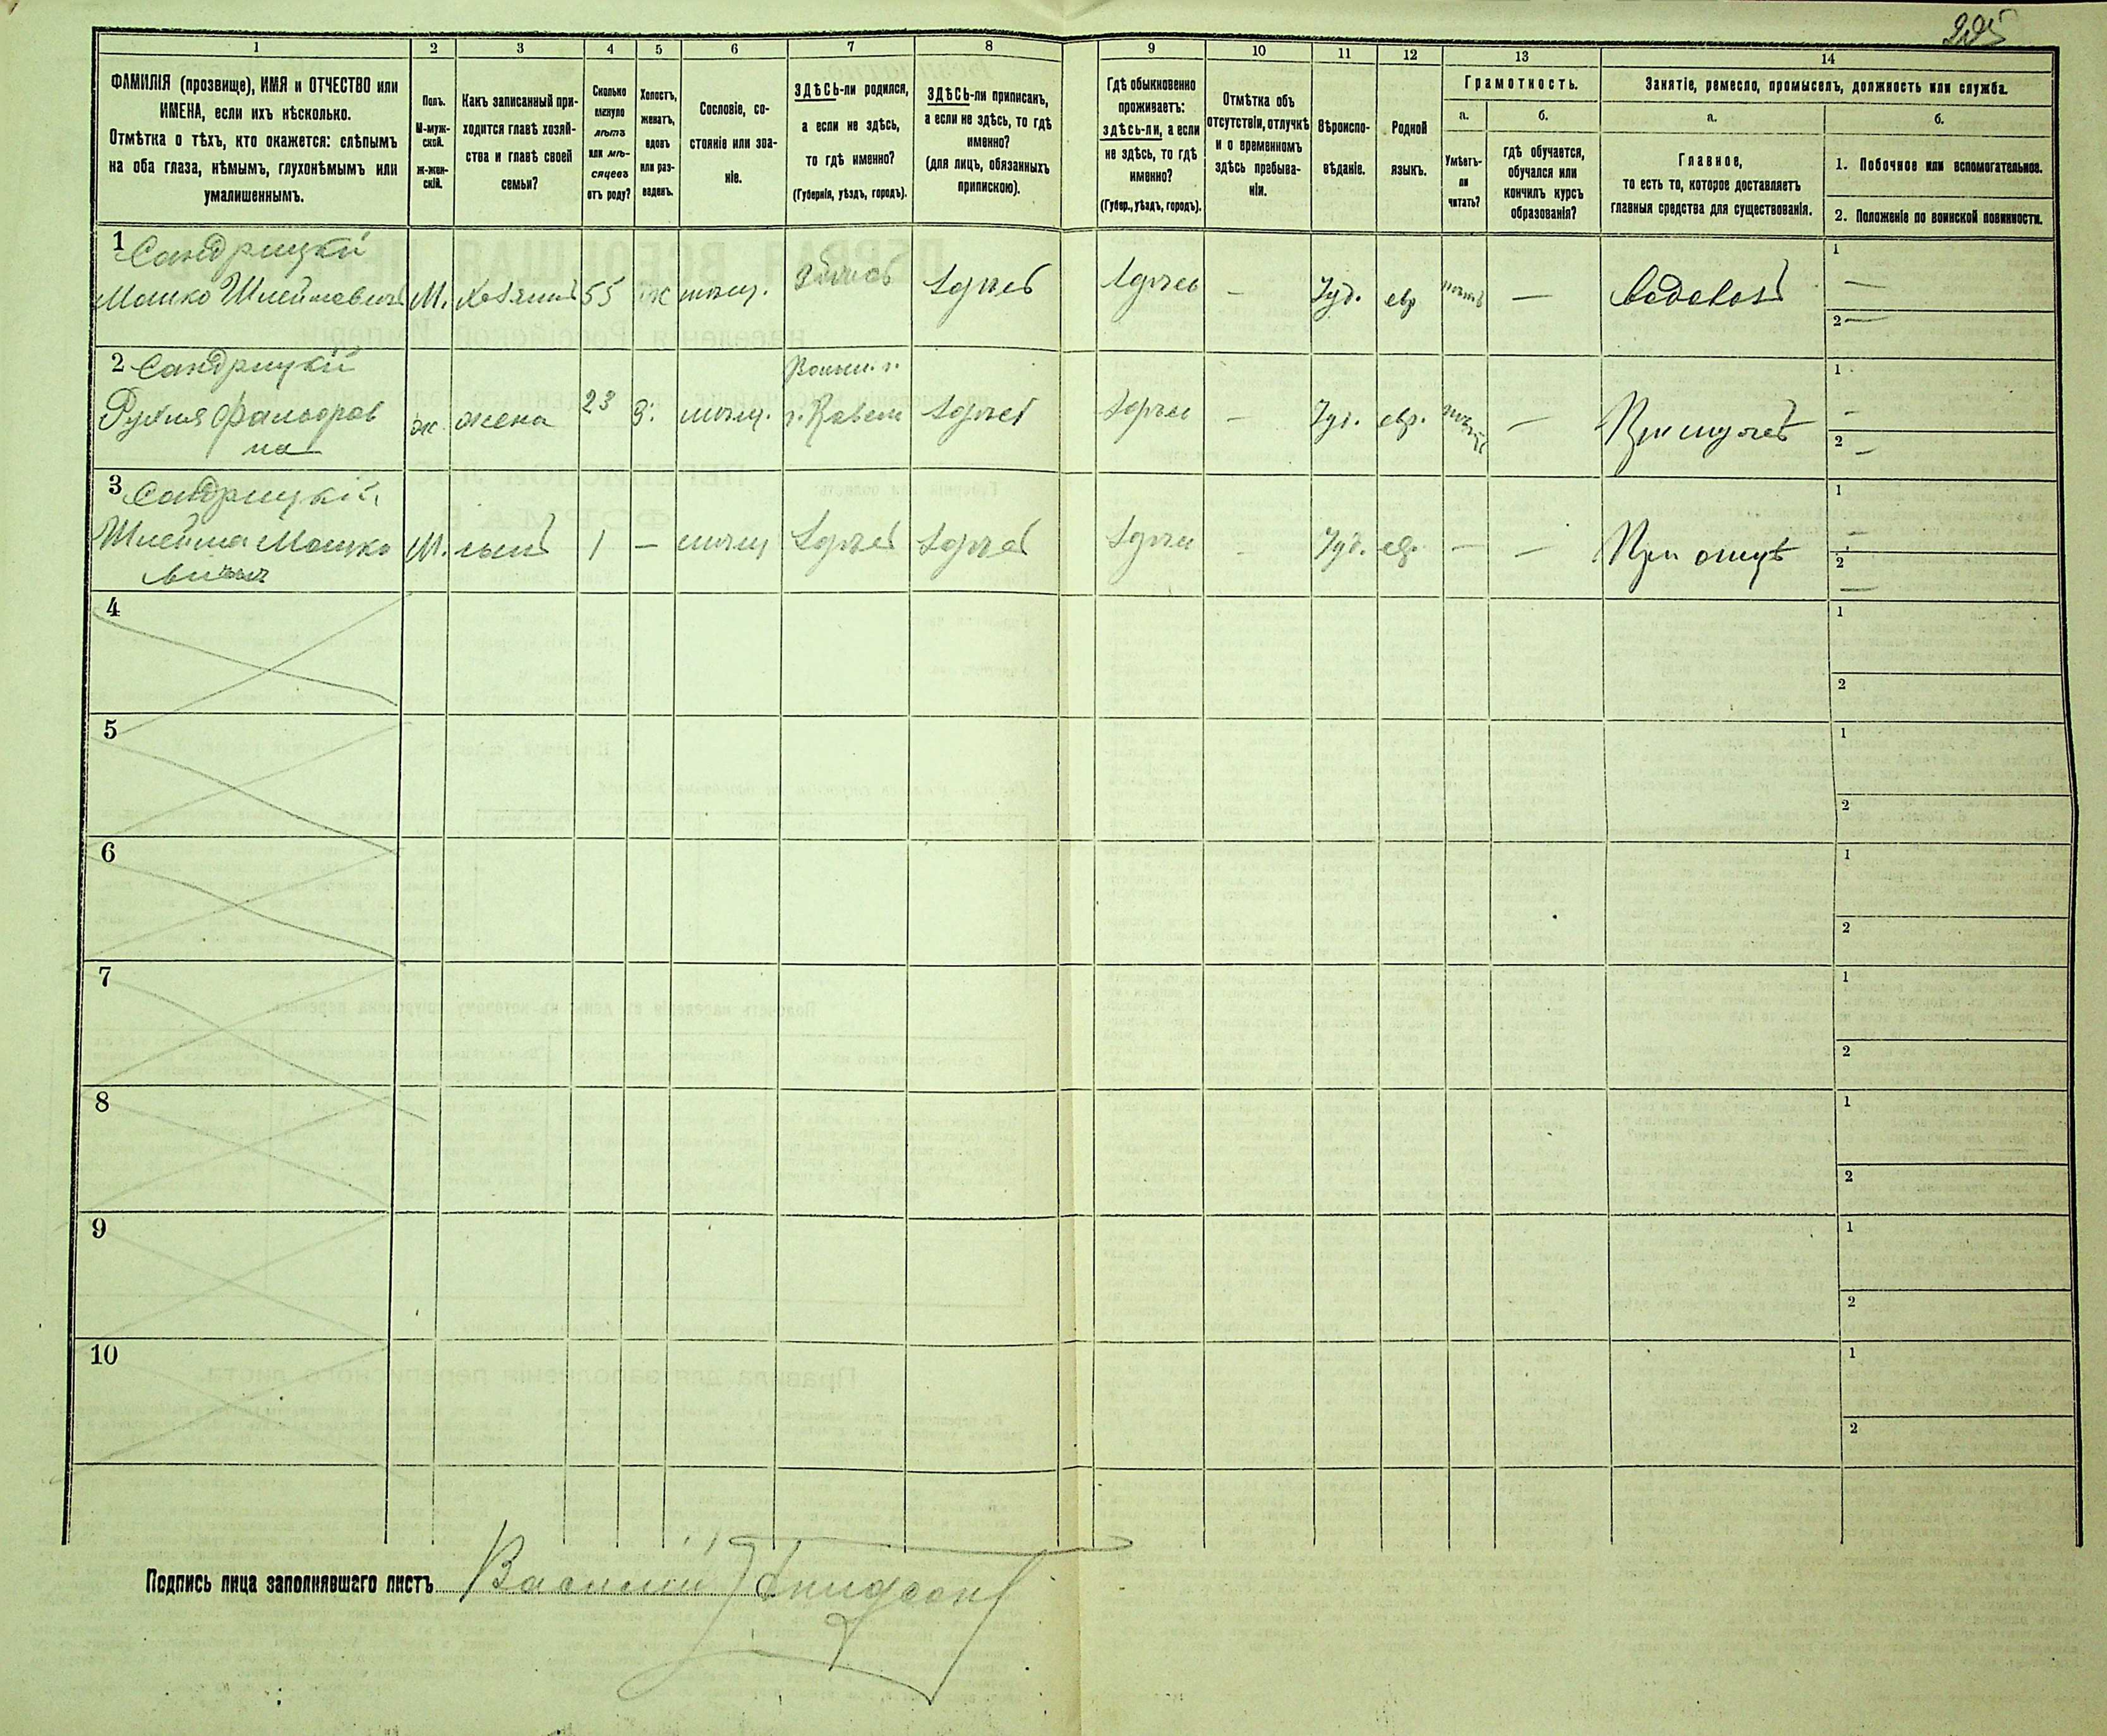 225
1 2 3 4 5 6 7 8 9 10 11 12 13 14
ФАМИЛІЯ (прозвище), ИМЯ и ОТЧЕСТВО или
ИМЕНА, если ихъ нѣсколько.
Отмѣтка о тѣхъ, кто окажется: слѣпымъ
на оба глаза, нѣмымъ, глухонѣмымъ или
умалишеннымъ.
Полъ.
М-муж-
ской.
ж-жен-
скій.
Какъ записанный при-
ходится главѣ хозяй-
ства и главѣ своей
семьи?
Сколько
минуло
лѣтъ
или мѣ-
сяцевъ
отъ роду?
Холостъ,
женатъ,
вдовъ
или раз-
веденъ.
Сословіе, со-
стояніе или зва-
ніе.
ЗДѢСЬ-ли родился,
а если не здѣсь,
то гдѣ именно?
(Губернія, уѣздъ, городъ).
ЗДѢСЬ-ли приписанъ,
а если не здѣсь, то гдѣ
именно?
(для лицъ, обязанныхъ
припискою).
Гдѣ обыкновенно
проживаетъ:
здѣсь-ли, а если
не здѣсь, то гдѣ
именно?
(Губер., уѣздъ, городъ).
Отмѣтка объ
отсутствіи, отлучкѣ
и о временномъ
здѣсь пребыва-
ніи.
Вѣроиспо-
вѣданіе.
Родной
языкъ.
Грамотность.
а.
Умѣетъ-
ли
читать?
б.
гдѣ обучается,
обучался или
кончилъ курсъ
образованія?
Занятіе, ремесло, промыселъ, должность или служба.
а.
Главное,
то есть то, которое доставляетъ
главныя средства для существованія.
б.
1. Побочное или вспомогательное.
2. Положеніе по воинской повинности.
1 Сандрицкій
Мошко Шлеймовичъ М. хозяинъ 55 ж мѣщ. здѣсь — Іуд. евр — водовозъ
1 —
2 —
2 Сандрицкій
на ж. жена 23 З. мѣщ. — Іуд. евр. — При мужѣ
1 —
2 —
3 Сандрицкій
Шлейма Мошко М. сынъ 1 — мѣщ — Іуд. ев. — — При отцѣ
вичъ
1 —
2 —
4
1
2
5
1
2
6
1
2
7
1
2
8
1
2
9
1
2
10
1
2
Подпись лица заполнявшаго листъ Василій